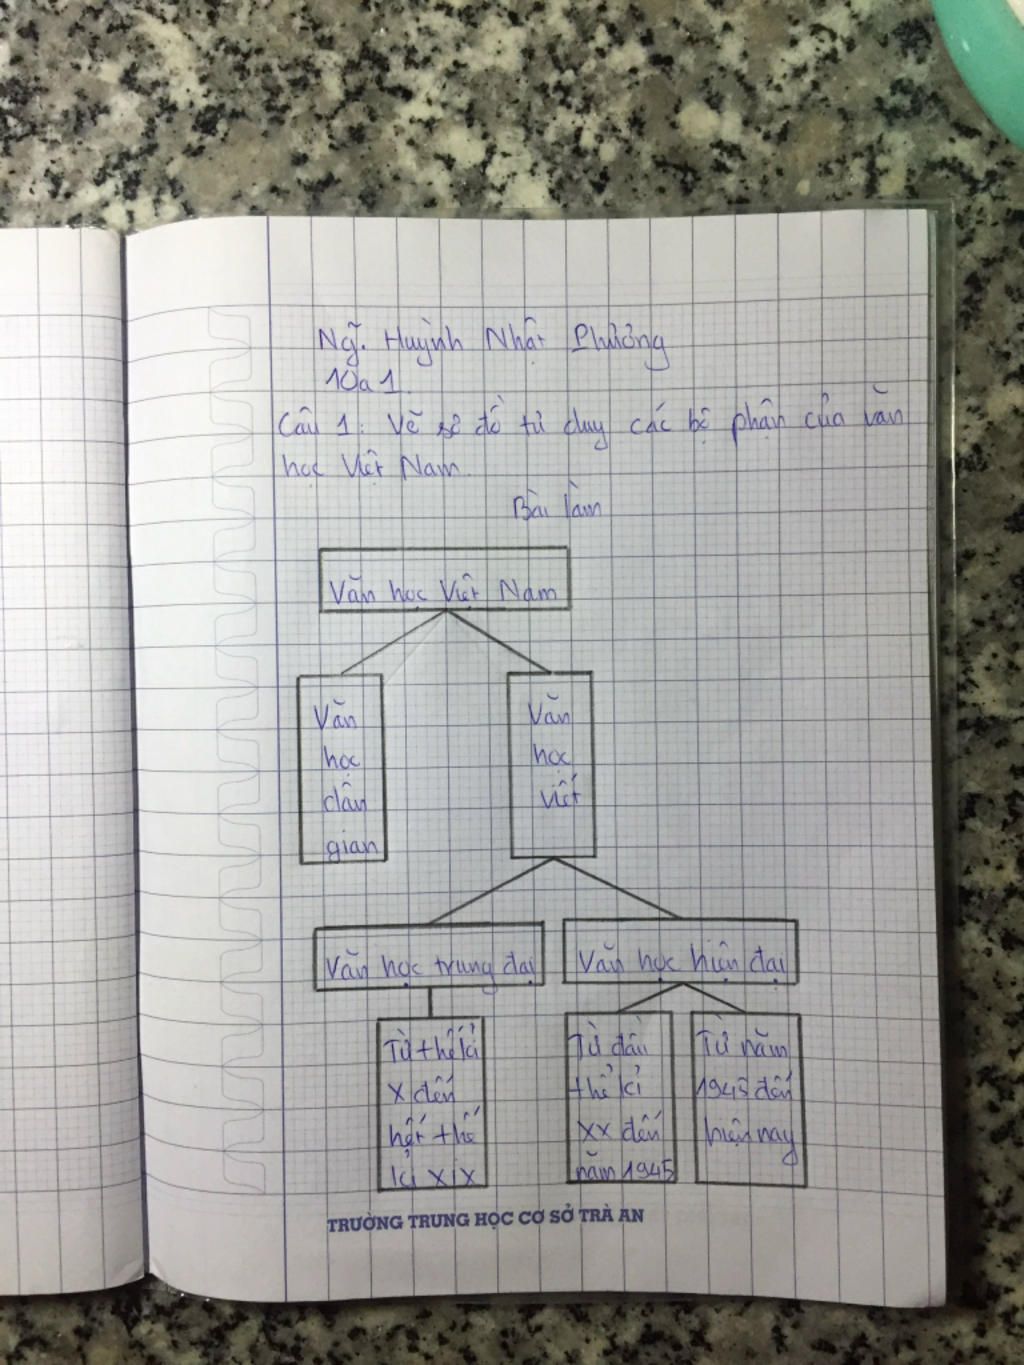 Ng~. Huỳnh Nhật Phương
10a1.
Câu 1: Vẽ sơ đồ tư duy các bộ phận của văn
học Việt Nam.
Bài làm
Văn học Việt Nam
Văn
học
dân
gian
Văn
học
viết
Văn học trung đại
Văn học hiện đại
Từ thế kỉ
X đến
hết thế
kỉ XIX
Từ đầu
thế kỉ
XX đến
năm 1945
Từ năm
1945 đến
hiện nay
TRƯỜNG TRUNG HỌC CƠ SỞ TRÀ AN